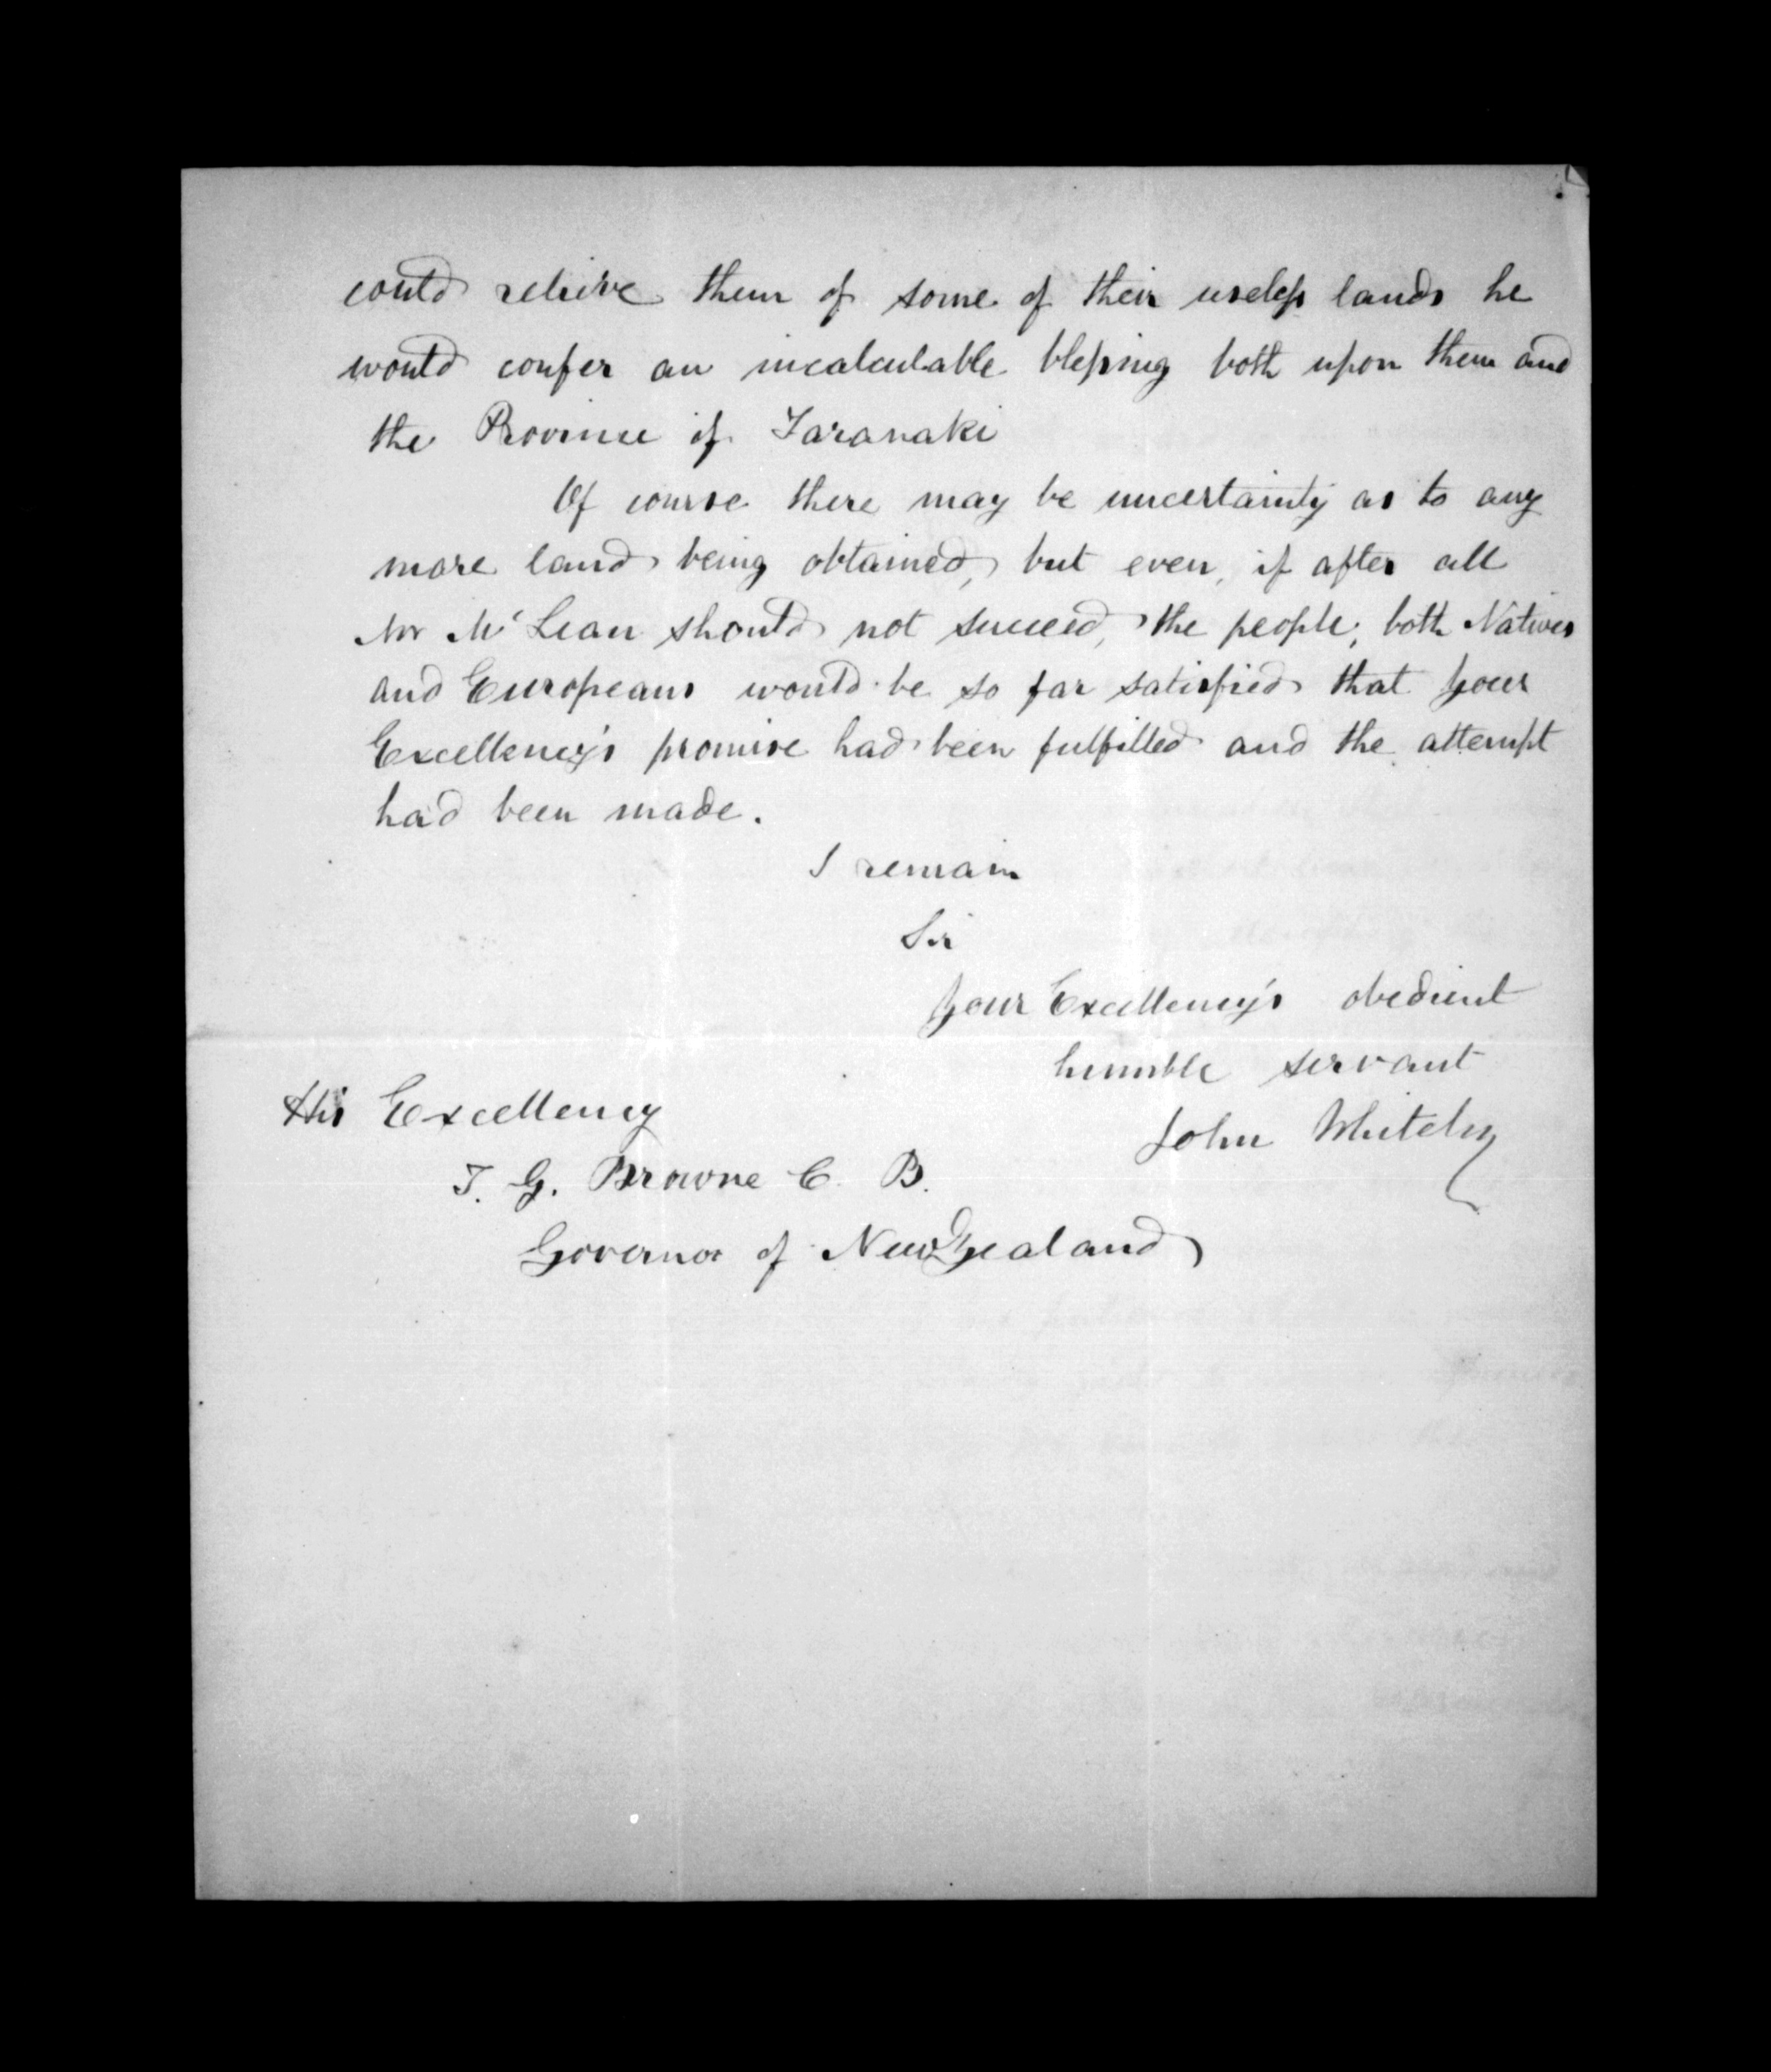 could relieve them of some of their useless lands he
would confer an incalculable blessing both upon them and
the Province of Taranaki
Of course there may be uncertainty as to any
more land being obtained, but even, if after all
Mr McLean should not succeed, the people, both Natives
and Europeans would be so far satisfied that Your
Excellency's promise had been fulfilled and the attempt
had been made.
I remain
Sir
Your Excellency's obedient
humble servant
John Whiteley
His Excellency
T. G. Browne C. B.
Governor of New Zealand